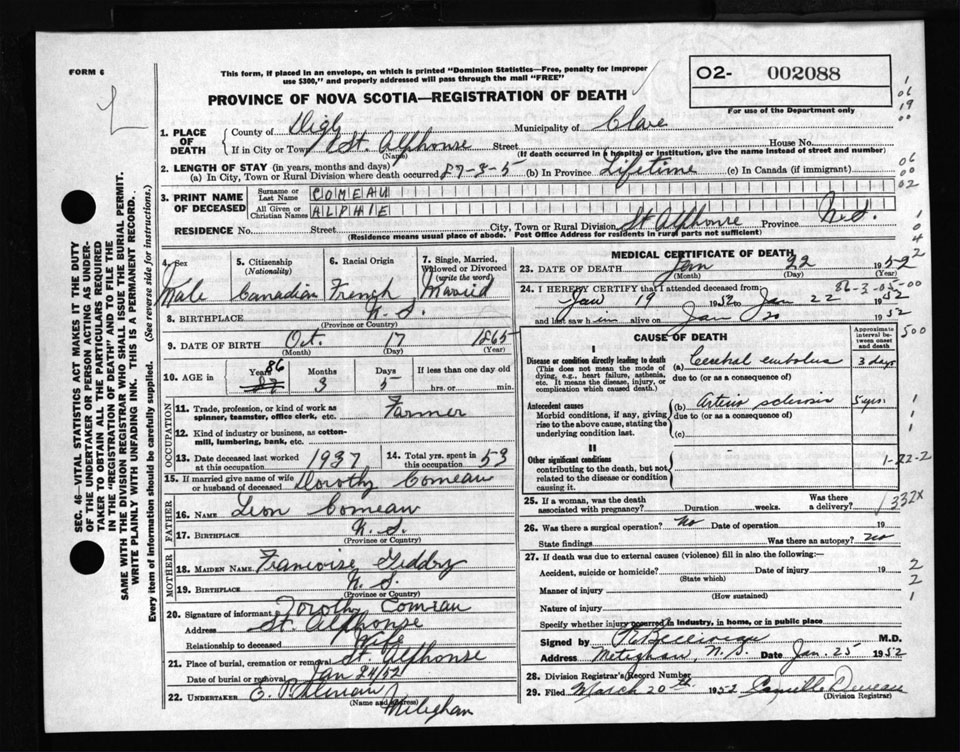 FORM 6
This form, if placed in an envelope, on which is printed "Dominion Statistics—Free, penalty for improper
use $300," and properly addressed will pass through the mail "FREE"
O2- 002088
For use of the Department only
PROVINCE OF NOVA SCOTIA—REGISTRATION OF DEATH
1. PLACE OF DEATH
County of Digby Municipality of Clare
If in City or Town St. Alphonse Street House No.
(Name) (If death occurred in a hospital or institution, give the name instead of street and number)
2. LENGTH OF STAY (in years, months and days)
(a) In City, Town or Rural Division where death occurred 87-3-5 (b) In Province Lifetime (c) In Canada (if immigrant)
3. PRINT NAME OF DECEASED
Surname or Last Name COMEAU
All Given or Christian Names ALPHIE
RESIDENCE No. Street City, Town or Rural Division St Alphonse Province N.S.
(Residence means usual place of abode. Post Office Address for residents in rural parts not sufficient)
4. Sex
Male
5. Citizenship
(Nationality)
Canadian
6. Racial Origin
French
7. Single, Married,
Widowed or Divorced
(write the word)
Married
8. BIRTHPLACE N.S.
(Province or Country)
9. DATE OF BIRTH Oct. 17 1865
(Month) (Day) (Year)
10. AGE in Years Months Days If less than one day old
86 87 3 5 hrs. or min.
OCCUPATION
11. Trade, profession, or kind of work as
spinner, teamster, office clerk, etc. Farmer
12. Kind of industry or business, as cotton-
mill, lumbering, bank, etc.
13. Date deceased last worked
at this occupation 1937
14. Total yrs. spent in
this occupation 53
15. If married give name of wife
or husband of deceased Dorothy Comeau
FATHER
16. NAME Leon Comeau
17. BIRTHPLACE N.S.
(Province or Country)
MOTHER
18. MAIDEN NAME Francoise
19. BIRTHPLACE N.S.
(Province or Country)
20. Signature of informant Dorothy Comeau
Address St. Alphonse
Relationship to deceased Wife
21. Place of burial, cremation or removal St Alphonse
Date of burial or removal Jan 24/52
22. UNDERTAKER E.
(Name and Address)
Meteghan
MEDICAL CERTIFICATE OF DEATH
23. DATE OF DEATH Jan 22 1952
(Month) (Day) (Year)
24. I HEREBY CERTIFY that I attended deceased from 86-3-05-00
Jan 19 1952 to Jan 22 1952
and last saw him alive on Jan 20 1952
CAUSE OF DEATH
Approximate
interval be-
tween onset
and death
500
I
Disease or condition directly leading to death
(This does not mean the mode of
dying, e.g., heart failure, asthenia,
etc. It means the disease, injury, or
complication which caused death.)
(a) Cerebral embolus 3 days
due to (or as a consequence of)
Antecedent causes
Morbid conditions, if any, giving
rise to the above cause, stating the
underlying condition last.
(b) Arterio sclerosis 5 yrs.
due to (or as a consequence of)
(c)
II
Other significant conditions
contributing to the death, but not
related to the disease or condition
causing it.
1-22-2
25. If a woman, was the death
associated with pregnancy? Duration weeks. Was there
a delivery?
332X
26. Was there a surgical operation? No Date of operation 19
State findings Was there an autopsy? no
27. If death was due to external causes (violence) fill in also the following:—
Accident, suicide or homicide? Date of injury 19
(State which)
Manner of injury
(How sustained)
Nature of injury
Specify whether injury occurred in industry, in home, or in public place
Signed by Belliveau M.D.
Address Meteghan, N.S. Date Jan. 25 1952
28. Division Registrar's Record Number
29. Filed March 20th 1952 Camille
(Division Registrar)
SEC. 46—VITAL STATISTICS ACT MAKES IT THE DUTY
OF THE UNDERTAKER OR PERSON ACTING AS UNDER-
TAKER TO OBTAIN ALL THE PARTICULARS REQUIRED
IN THE "REGISTRATION OF DEATH" AND TO FILE THE
SAME WITH THE DIVISION REGISTRAR WHO SHALL ISSUE THE BURIAL PERMIT.
WRITE PLAINLY WITH UNFADING INK. THIS IS A PERMANENT RECORD.
Every item of information should be carefully supplied. (See reverse side for instructions.)